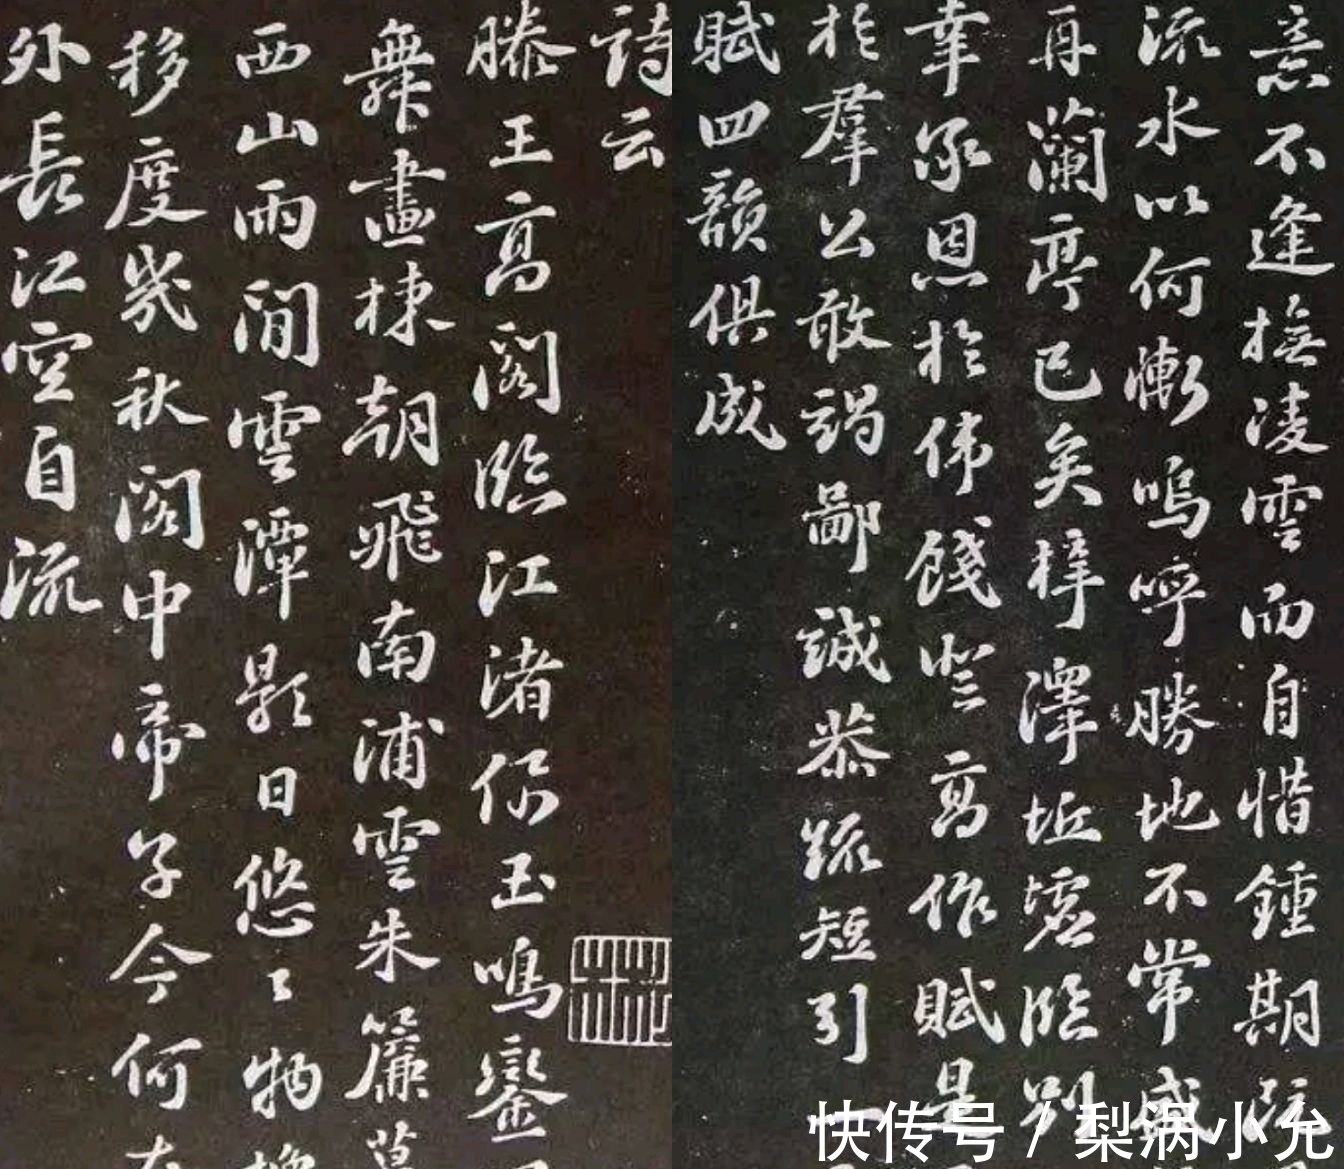 意不逢撫凌雲而自惜鍾期
流水以何慚嗚呼勝地不常盛
再蘭亭已矣梓澤坵墟臨別
幸承恩於偉餞登高作賦是
於羣公敢竭鄙誠恭疏短引一
賦四韻俱成
詩云
滕王高閣臨江渚佩玉鳴鑾
舞畫棟朝飛南浦雲朱簾
西山雨閒雲潭影日悠々物
移度幾秋閣中帝子今何
外長江空自流
快传号 / 梨涡小允